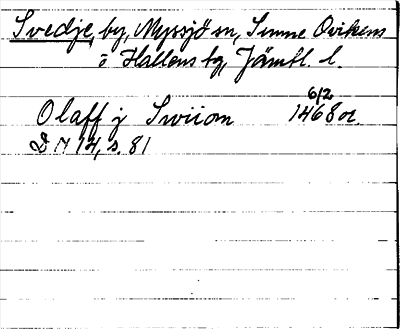 Svedje, by, Myssjö sn, Sunne Ovikens
o Hallens tg, Jämtl. l.
Olaff j Swiiom 6/2 1468 or.
D N 14, s. 81